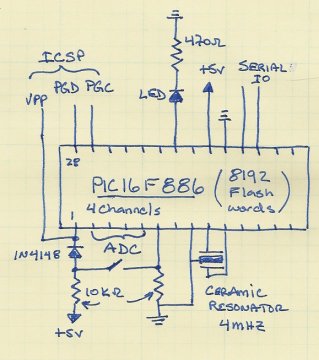 ICSP
VPP
PGD PGC
470Ω
LED
+5V
SERIAL
IO
28
PIC16F886
(8192
Flash
words)
4 channels
1
ADC
1N4148
10KΩ
+5V
CERAMIC
RESONATOR
4MHZ